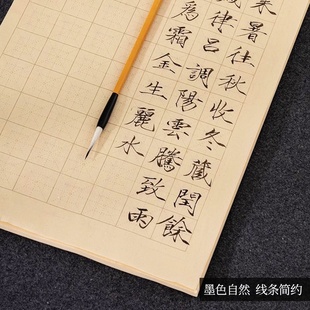 來暑往秋收冬藏閏餘
歲律呂調陽雲騰致雨
為霜金生麗水
墨色自然 线条简约